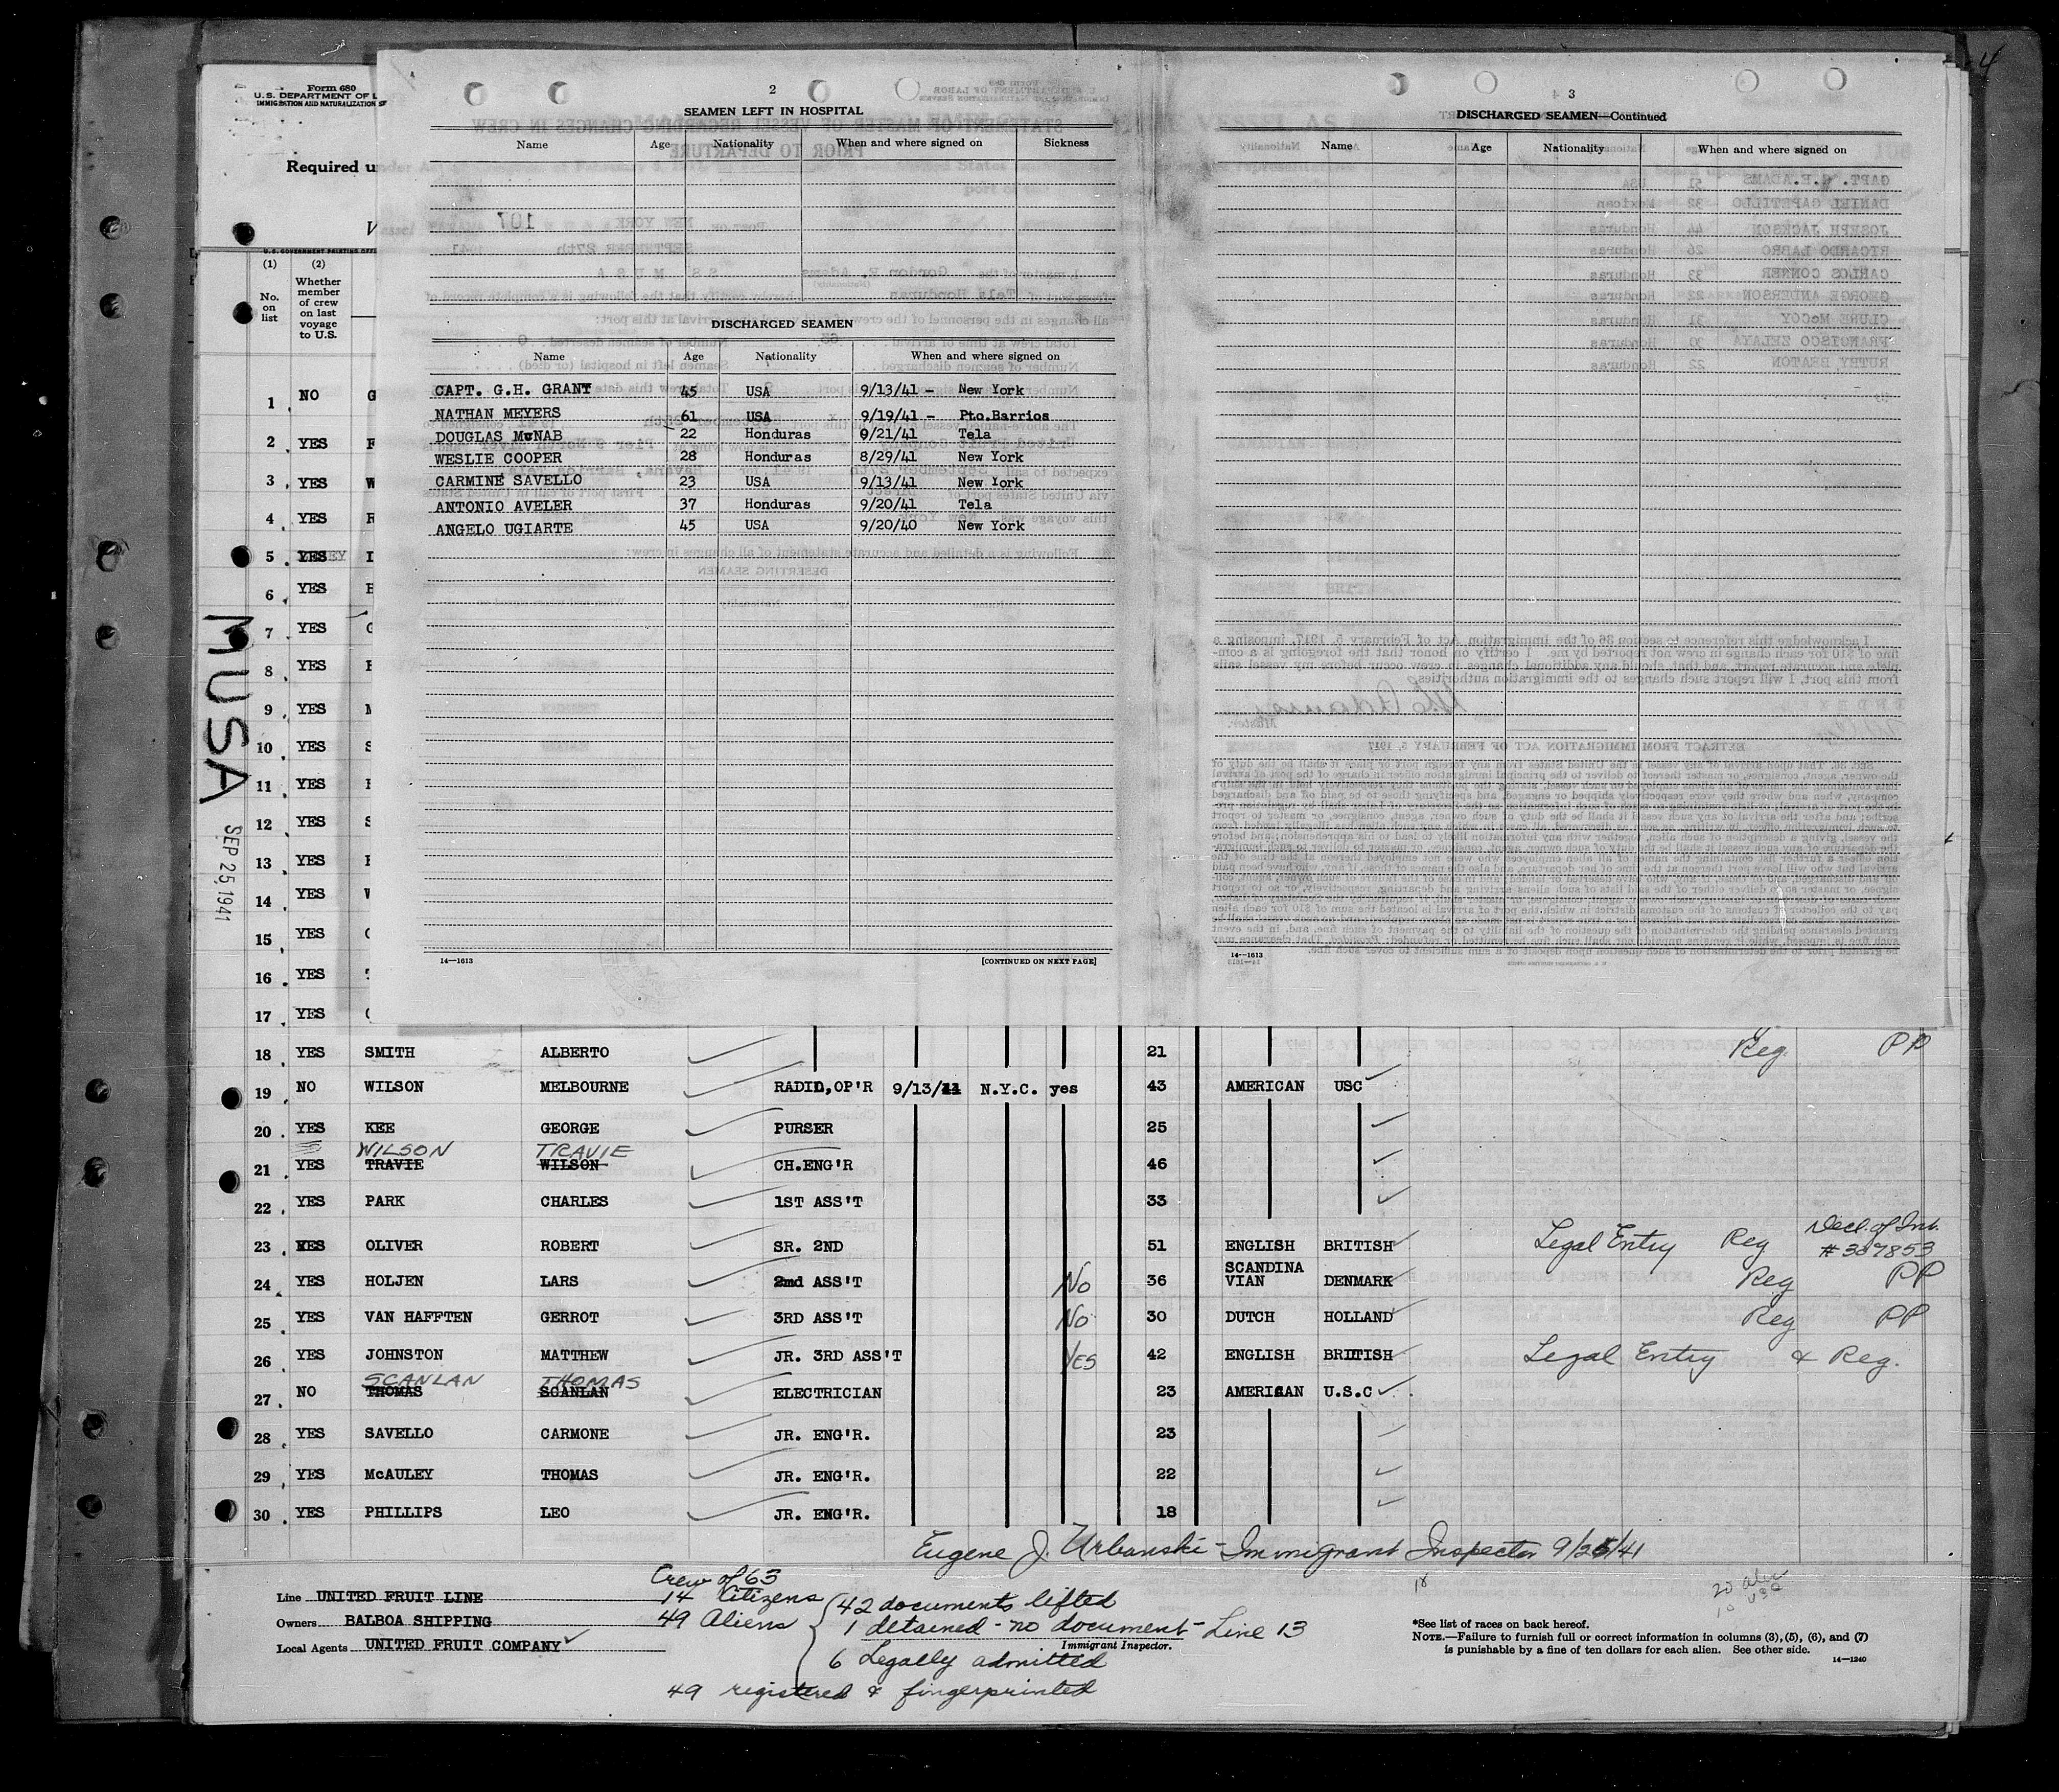 4
Form 680
U.S. DEPARTMENT OF L
IMMIGRATION AND NATURALIZATION SE
Required u
V
U.S. GOVERNMENT PRINTING OFFI
(1) (2)
No. on list
Whether member of crew on last voyage to U.S.
1 NO G
2 YES F
3 YES W
4 YES R
5 YES I
6 YES E
7 YES G
8 YES
9 YES M
10 YES S
11 YES
12 YES S
13 YES
14 YES W
15 YES
16 YES
17 YES
MUSA
SEP 25 1941
2
SEAMEN LEFT IN HOSPITAL
Name Age Nationality When and where signed on Sickness
DISCHARGED SEAMEN
Name Age Nationality When and where signed on
CAPT. G.H. GRANT 45 USA 9/13/41 - New York
NATHAN MEYERS 61 USA 9/19/41 - Pto.Barrios
DOUGLAS McNAB 22 Honduras 9/21/41 Tela
WESLIE COOPER 28 Honduras 8/29/41 New York
CARMINE SAVELLO 23 USA 9/13/41 New York
ANTONIO AVELER 37 Honduras 9/20/41 Tela
ANGELO UGIARTE 45 USA 9/20/40 New York
14—1613 [CONTINUED ON NEXT PAGE]
3
DISCHARGED SEAMEN—Continued
Name Age Nationality When and where signed on
14—1613
18 YES SMITH ALBERTO 21 Reg PP
19 NO WILSON MELBOURNE RADIO,OP'R 9/13/41 N.Y.C. yes 43 AMERICAN USC
20 YES KEE GEORGE PURSER 25
WILSON TRAVIE
21 YES TRAVIE WILSON CH.ENG'R 46
22 YES PARK CHARLES 1ST ASS'T 33
23 YES OLIVER ROBERT SR. 2ND 51 ENGLISH BRITISH Legal Entry Reg Decl. of Int. #367853
24 YES HOLJEN LARS 2nd ASS'T No 36 SCANDINAVIAN DENMARK Reg PP
25 YES VAN HAFFTEN GERROT 3RD ASS'T No 30 DUTCH HOLLAND Reg PP
26 YES JOHNSTON MATTHEW JR. 3RD ASS'T YES 42 ENGLISH BRITISH Legal Entry & Reg.
SCANLAN THOMAS
27 NO THOMAS SCANLAN ELECTRICIAN 23 AMERICAN U.S.C
28 YES SAVELLO CARMONE JR. ENG'R. 23
29 YES McAULEY THOMAS JR. ENG'R. 22
30 YES PHILLIPS LEO JR. ENG'R. 18
Eugene J. Urbanski - Immigrant Inspector 9/25/41
Line UNITED FRUIT LINE
Owners BALBOA SHIPPING
Local Agents UNITED FRUIT COMPANY
Crew of 63
14 Citizens
49 Aliens
42 documents lifted
1 detained - no document - Line 13
Immigrant Inspector.
6 Legally admitted
49 registered & fingerprinted
18
*See list of races on back hereof.
NOTE.—Failure to furnish full or correct information in columns (3), (5), (6), and (7)
is punishable by a fine of ten dollars for each alien. See other side.
14—1240